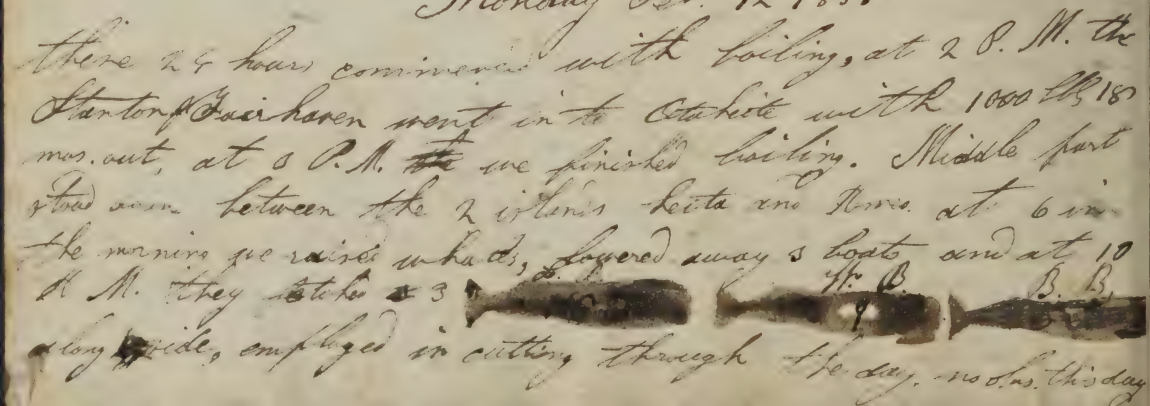 Monday 12 183
these 24 hours commenced with boiling, at 2 P. M. the
Stanton of Fairhaven went in to Otaheite with 1000 bbls 18
mos. out, at 8 P. M. we finished boiling. Middle part
stood between the 2 islands and at 6 in
the morning we raised whales, lowered away 3 boats and at 10
A M. they 3 W. B. B. B.
along side, employed in cutting through the day. no obs. this day